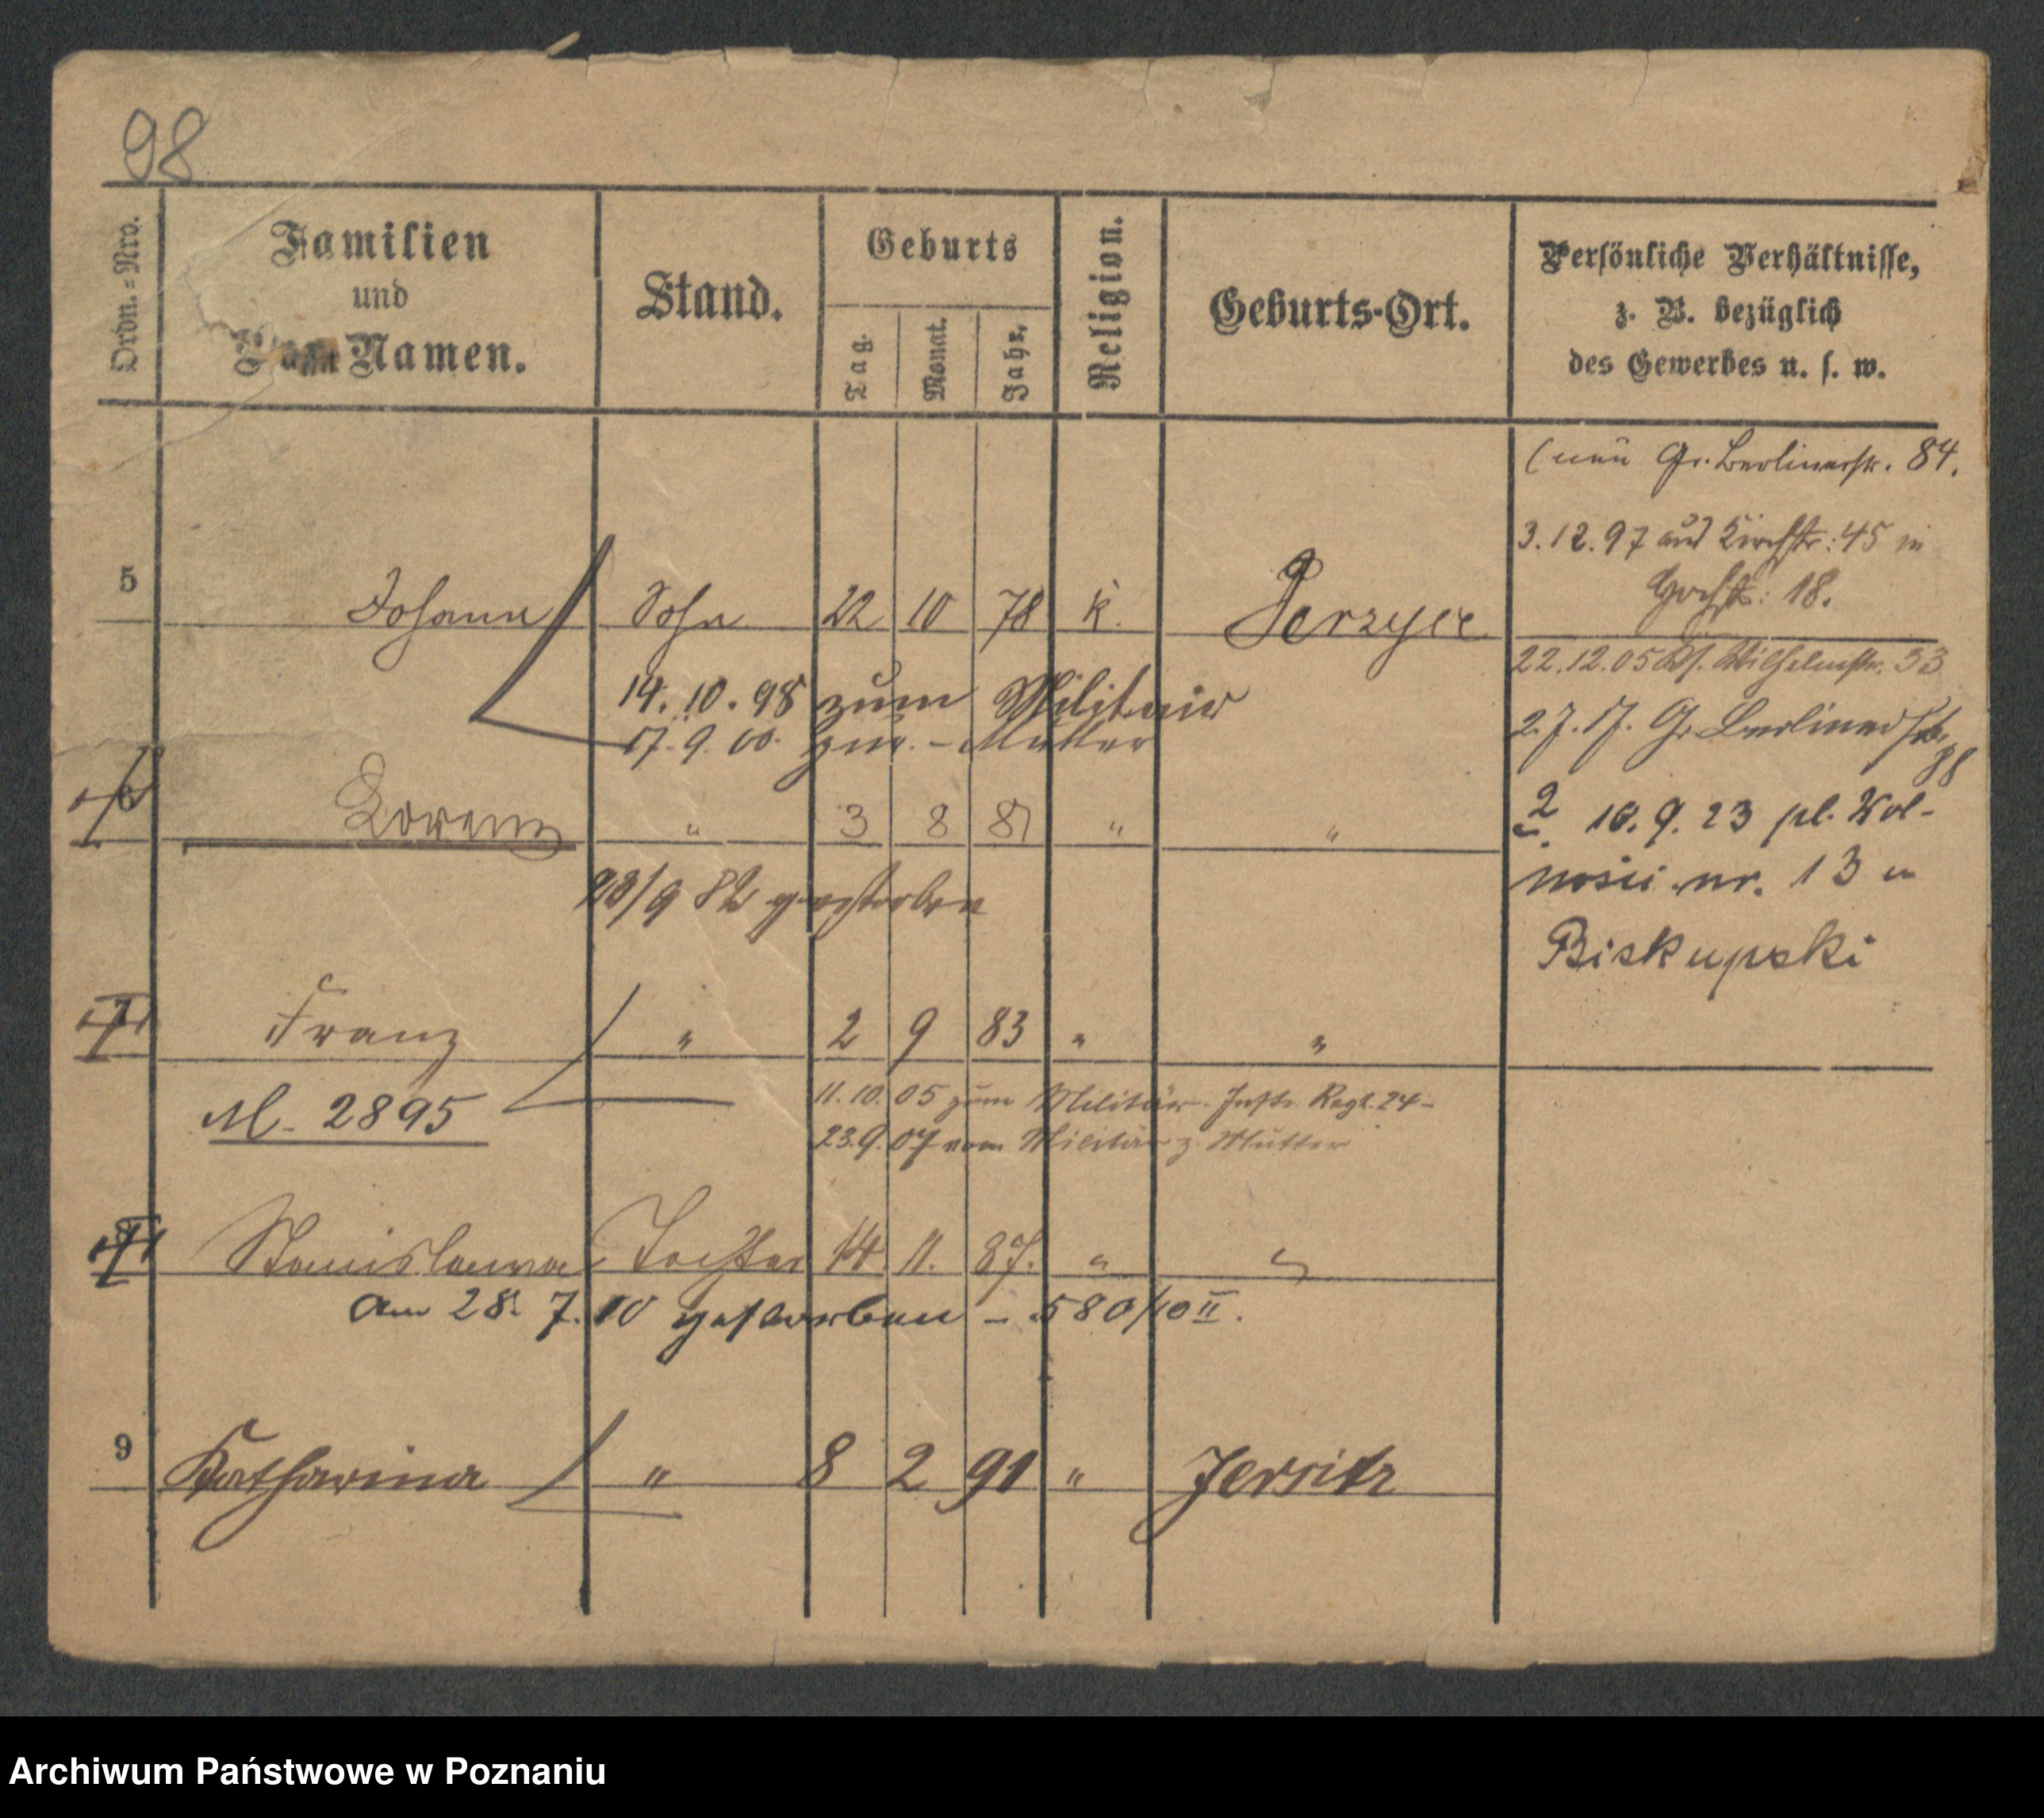 98
Ordn.-Nro.
Familien
und
Vor-Namen.
Stand.
Geburts
Tag.
Monat.
Jahr.
Religion.
Geburts-Ort.
Persönliche Verhältnisse,
z. B. bezüglich
des Gewerbes u. s. w.
(neu Gr. Berlinerstr. 84.
3.12.97 aus Kirchstr: 45 in
18.
5 Johann Sohn 22 10 78 k. Jerzyce
22.12.05 Wilhelmstr. 33
14.10.98 zum Militair
17.9.00. zur. - Mutter
2.7.17. Gr. Berliner Str. 98
6 Lorenz " 3 8 81 " "
10.9.23 pl. Wol-
nosci nr. 13 u
Biskupski
23/9 82 gestorben
7 Franz " 2 9 83 " "
M. 2895
11.10.05 zum Militär Inftr. Regt. 24-
23.9.07 vom Militär z. Mutter
8 Stanislawa Tochter 14. 11. 87. " "
am 28. 7. 10 gestorben - 580/10 II.
9 Katharina " 8 2 91 " Jersitz
Archiwum Państwowe w Poznaniu